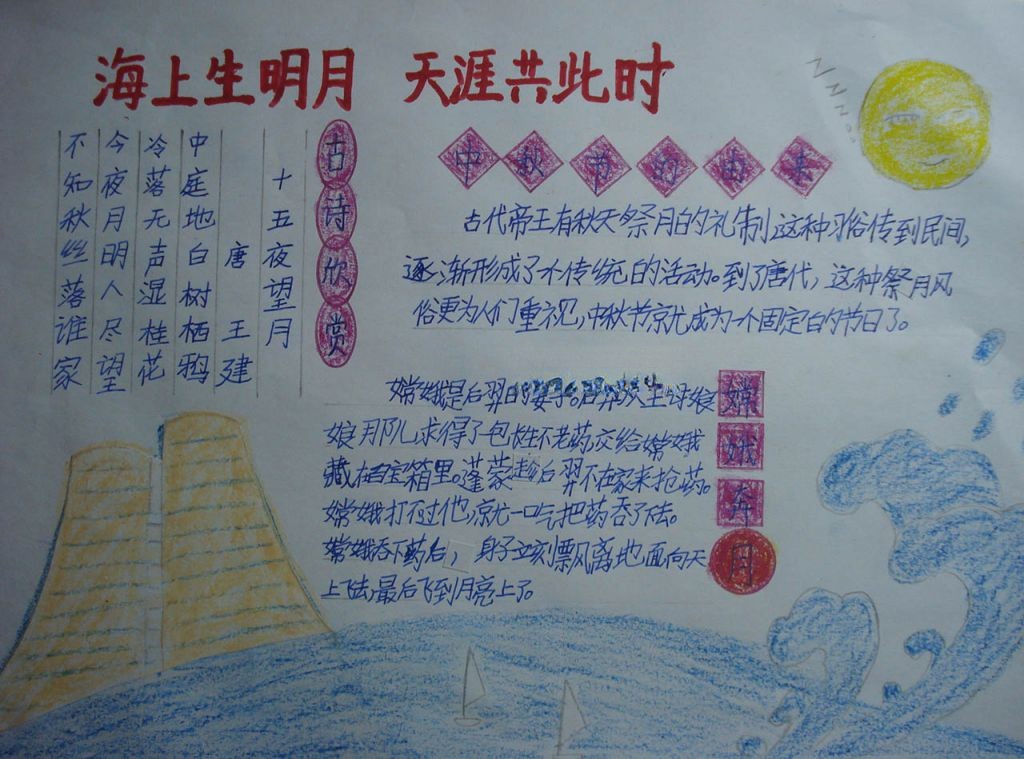 海上生明月 天涯共此时
NNNn
古诗欣赏
十五夜望月
唐 王建
中庭地白树栖鸦
冷落无声湿桂花
今夜月明人尽望
不知秋丝落谁家
中秋节的由来
古代帝王有秋天祭月的礼制,这种习俗传到民间,
逐渐形成了个传统的活动。到了唐代,这种祭月风
俗更为人们重视,中秋节就成为一个固定的节日了。
嫦娥奔月
嫦娥是后羿的妻子。后羿从王母娘
娘那儿求得了包长生不老药交给嫦娥
藏在百宝箱里。蓬蒙趁后羿不在家来抢药。
嫦娥打不过他,就一口气把药吞了下去。
嫦娥吞下药后,身子立刻飘风离地面向天
上飞去,最后飞到月亮上了。